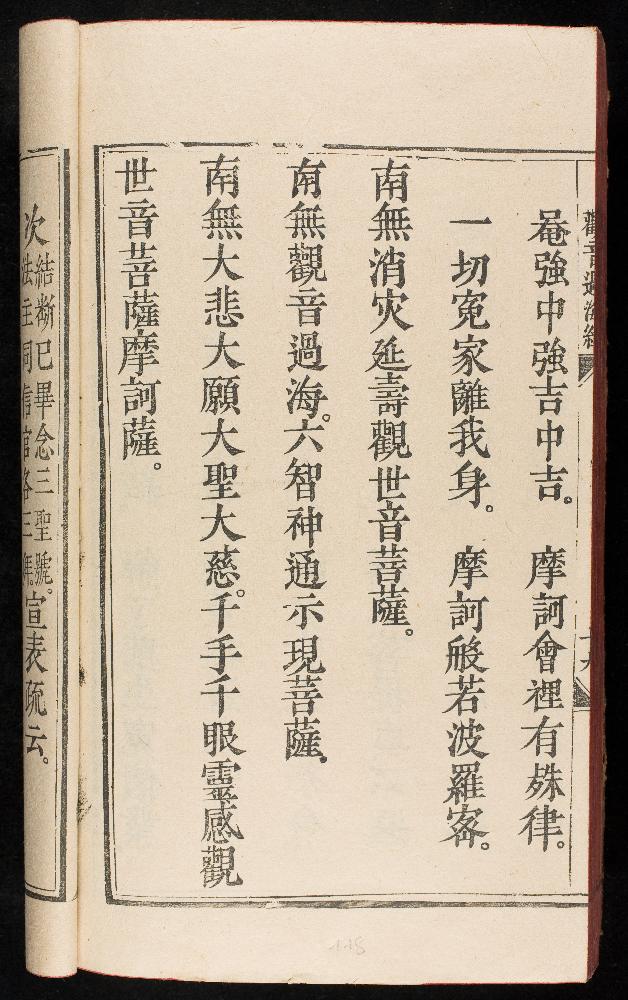 觀音過海經
十九
菴強中強吉中吉。　摩訶會裡有殊律。
一切寃家離我身。　摩訶般若波羅宻。
南無消灾延壽觀世音菩薩。
南無觀音過海。六智神通示現菩薩。
南無大悲大願大聖大慈。千手千眼靈感觀
世音菩薩摩訶薩。
次結斷已畢念三聖號。宣表疏云。
118